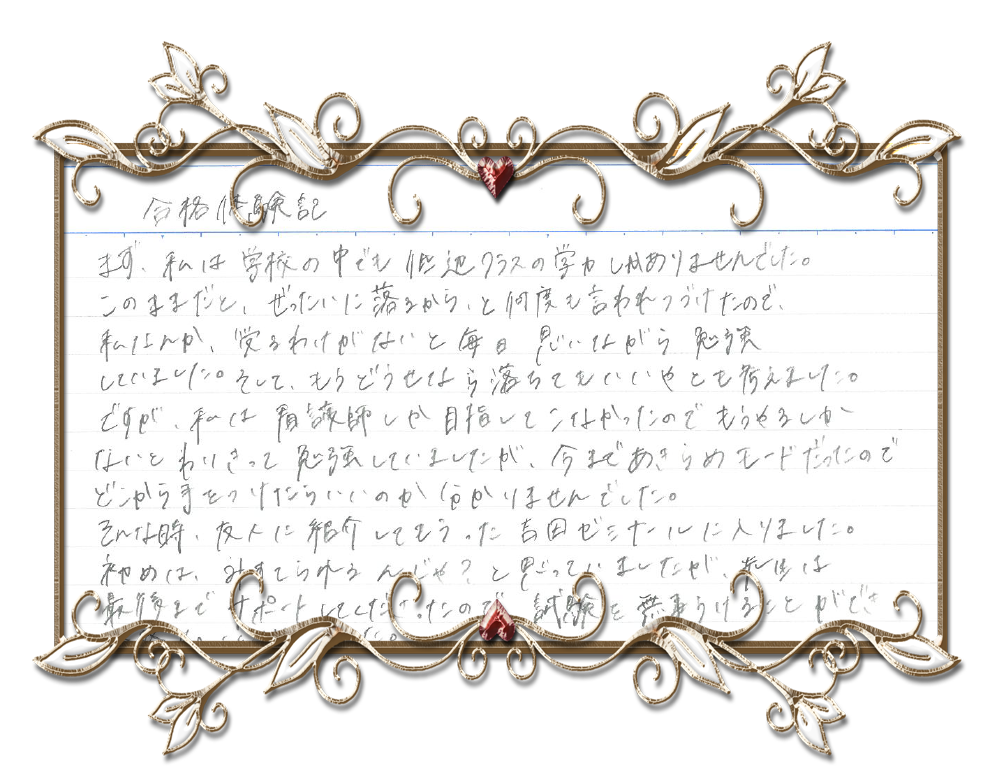 合格体験記
まず、私は学校の中でも低辺クラスの学力しかありませんでした。
このままだと、ぜったいに落るから、と何度も言われつづけたので、
私なんか、受るわけがないと毎日思いながら勉強
していました。そして、もうどうせなら落ちてもいいやとも考えました。
ですが、私は看護師しか目指してこなかったのでもうやるしか
ないとわりきって勉強していましたが、今まであきらめモードだったので
どこから手をつけたらいいのか分かりませんでした。
そんな時、友人に紹介してもらった吉田ゼミナールに入りました。
初めは、みすてられるんじゃ?と思っていましたが、先生は
最後までサポートしてくださったので、試験を無事うけることができ